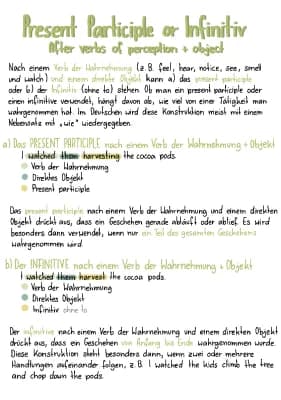 Present Participle or Infinitiv
After verbs of perception + object
Nach einem Verb der Wahrnehmung (z.B. feel, hear, notice, see, smell
und watch) und einem direkte Objekt kann a) das present participle
oder b) der Infinitiv (ohne to) stehen. Ob man ein present participle oder
einen infinitive verwendet, hängt davon ab, wie viel von einer Tätigkeit man
wahrgenommen hat. Im Deutschen wird diese Konstruktion meist mit einem
Nebensatz mit „wie" wiedergegeben.
a) Das PRESENT PARTICIPLE nach einem Verb der Wahrnehmung + Objekt
I watched them harvesting the cocoa pods.
Verb der Wahrnehmung
Direktes Objekt
Present participle
Das present participle nach einem Verb der Wahrnehmung und einem direkten
Objekt drückt aus, dass ein Geschehen gerade abläuft oder ablief. Es wird
besonders dann verwendet, wenn nur ein Teil des gesamten Geschehens
wahrgenommen wird.
b) Der INFINITIVE nach einem Verb der Wahrnehmung + Objekt
I watched them harvest the cocoa pods.
Verb der Wahrnehmung
Direktes Objekt
Infinitiv ohne to
Der infinitive nach einem Verb der Wahrnehmung und einem direkten Objekt
drückt aus, dass ein Geschehen von Anfang bis Ende wahrgenommen wurde.
Diese Konstruktion steht besonders dann, wenn zwei oder mehrere
Handlungen aufeinander folgen, z.B. I watched the kids climb the tree
and chop down the pods.